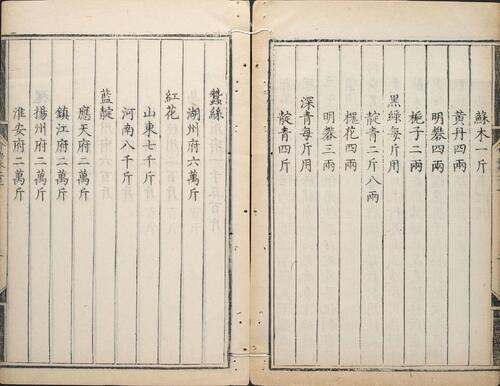 蘇木一斤
黃丹四兩
明礬四兩
梔子二兩
黑綠每斤用
靛青二斤八兩
槐花四兩
明礬三兩
深青每斤用
靛青四斤
蠶絲
湖州府六萬斤
紅花
山東七千斤
河南八千斤
藍靛
應天府二萬斤
鎮江府二萬斤
揚州府二萬斤
淮安府二萬斤